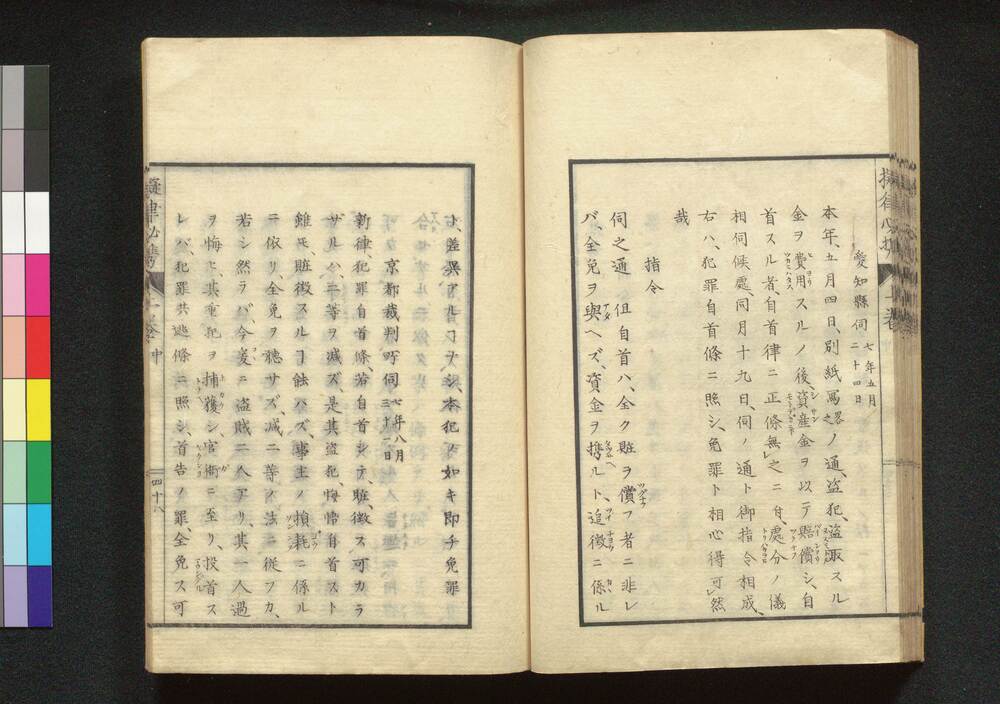 愛知縣伺 七年五月二十四日
本年、五月四日、別紙寫畧之ノ通、盗犯、盗取スル
金ヲ費用スルノ後、資産金ヲ以テ賠償シ、自
首スル者、自首律ニ正條無之ニ付、處分ノ儀
相伺候處、同月十九日、伺ノ通ト御指令相成、
右ハ、犯罪自首條ニ照シ、免罪ト相心得可然
哉
指令
伺之通 但自首ハ、全ク贓ヲ償フ者ニ非レ
バ、全免ヲ與ヘズ、資金ヲ携ルト、追徴ニ係ル
ト、差異アルヿナ、本犯ノ如キ即チ免罪
京都裁判所伺 七年八月三十一日
新律、犯罪自首條、若自首シテ、贓徴ス可カラ
ザルハ、二等ヲ減ズ、是其盗犯、悔悟自首スト
雖モ、贓徴スルヿ能ハズ、事主ノ損耗ニ係ル
ニ依リ、全免ヲ聽サズ、減二等ノ法ニ従フカ、
若シ然ラバ、今爰ニ盗賊二人アリ、其一人過
ヲ悔ヒ、其重犯ヲ捕獲シ、官衙ニ至リ、投首ス
レバ、犯罪共逃條ニ照シ、首告ノ罪、全免ス可
擬律必携
四十八